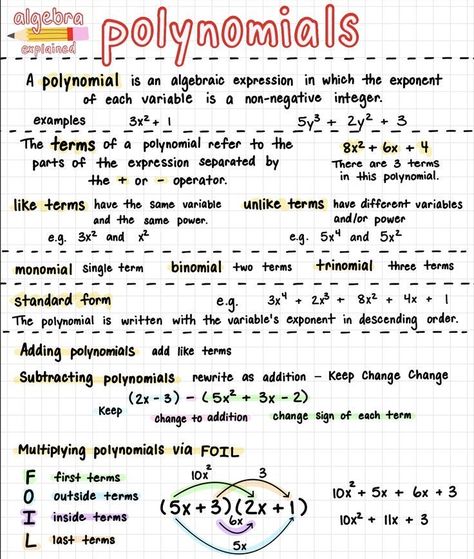 algebra
explained
polynomials
A polynomial is an algebraic expression in which the exponent
of each variable is a non-negative integer.
examples 3x² + 1 5y³ + 2y² + 3
The terms of a polynomial refer to the
parts of the expression separated by
the + or - operator.
8x² + 6x + 4
There are 3 terms
in this polynomial.
like terms have the same variable
and the same power.
e.g. 3x² and x²
unlike terms have different variables
and/or power
e.g. 5x⁴ and 5x²
monomial single term binomial two terms trinomial three terms
standard form e.g. 3x⁴ + 2x³ + 8x² + 4x + 1
The polynomial is written with the variable's exponent in descending order.
Adding polynomials add like terms
Subtracting polynomials rewrite as addition - Keep Change Change
(2x - 3) - (5x² + 3x - 2)
Keep change to addition change sign of each term
Multiplying polynomials via FOIL
F first terms
O outside terms
I inside terms
L last terms
10x² 3
(5x + 3)(2x + 1)
6x
5x
10x² + 5x + 6x + 3
10x² + 11x + 3